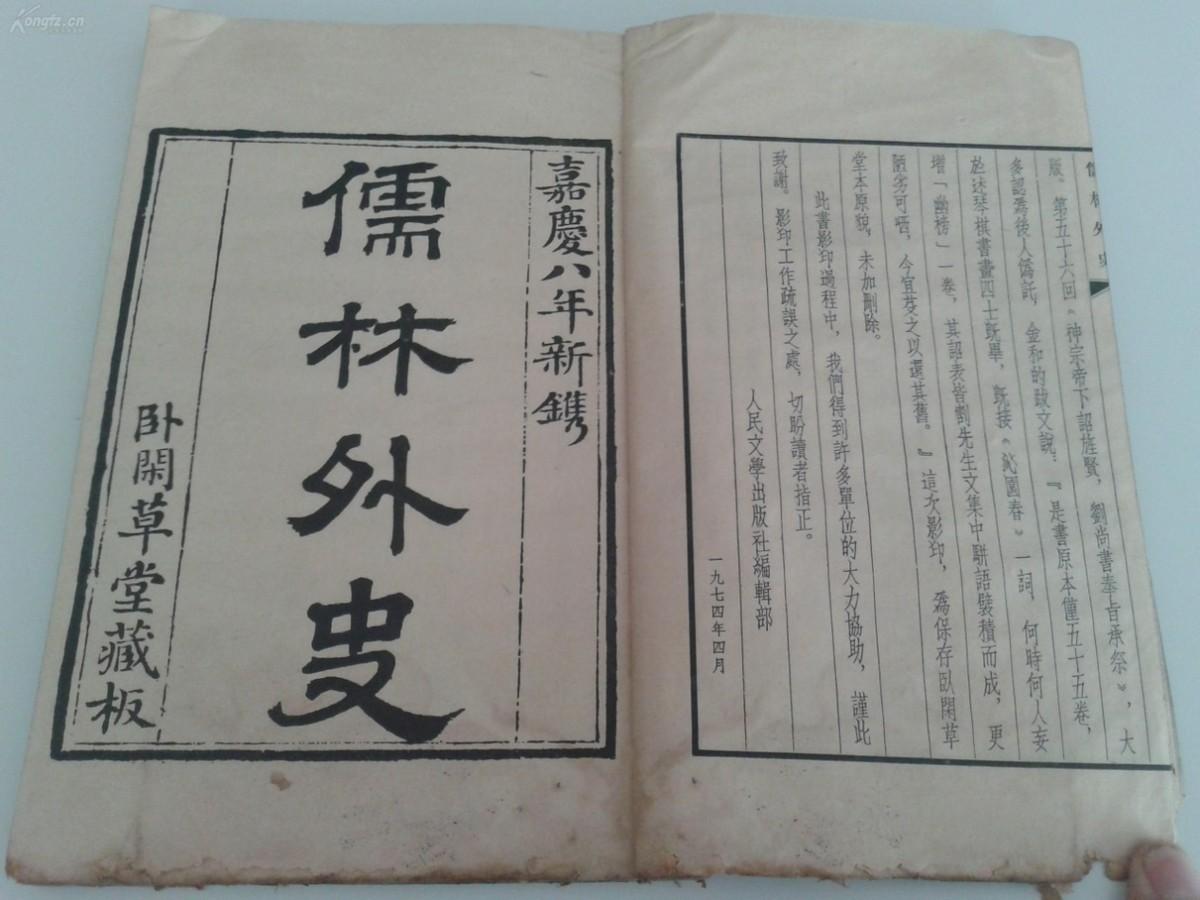 儒林外史
版。第五十六回《神宗帝下詔旌賢，劉尚書奉旨承祭》，大
多認爲後人僞託，金和的跋文說：『是書原本僅五十五卷，
於述琴棋書畫四士既畢，既接《沁園春》一詞，何時何人妄
增「幽榜」一卷，其詔表皆割先生文集中駢語襞積而成，更
陋劣可哂，今宜芟之以還其舊。』這次影印，爲保存臥閑草
堂本原貌，未加刪除。
此書影印過程中，我們得到許多單位的大力協助，謹此
致謝。影印工作疏誤之處，切盼讀者指正。
人民文學出版社編輯部
一九七四年四月
嘉慶八年新鐫
儒林外史
臥閑草堂藏板
Kongfz.cn